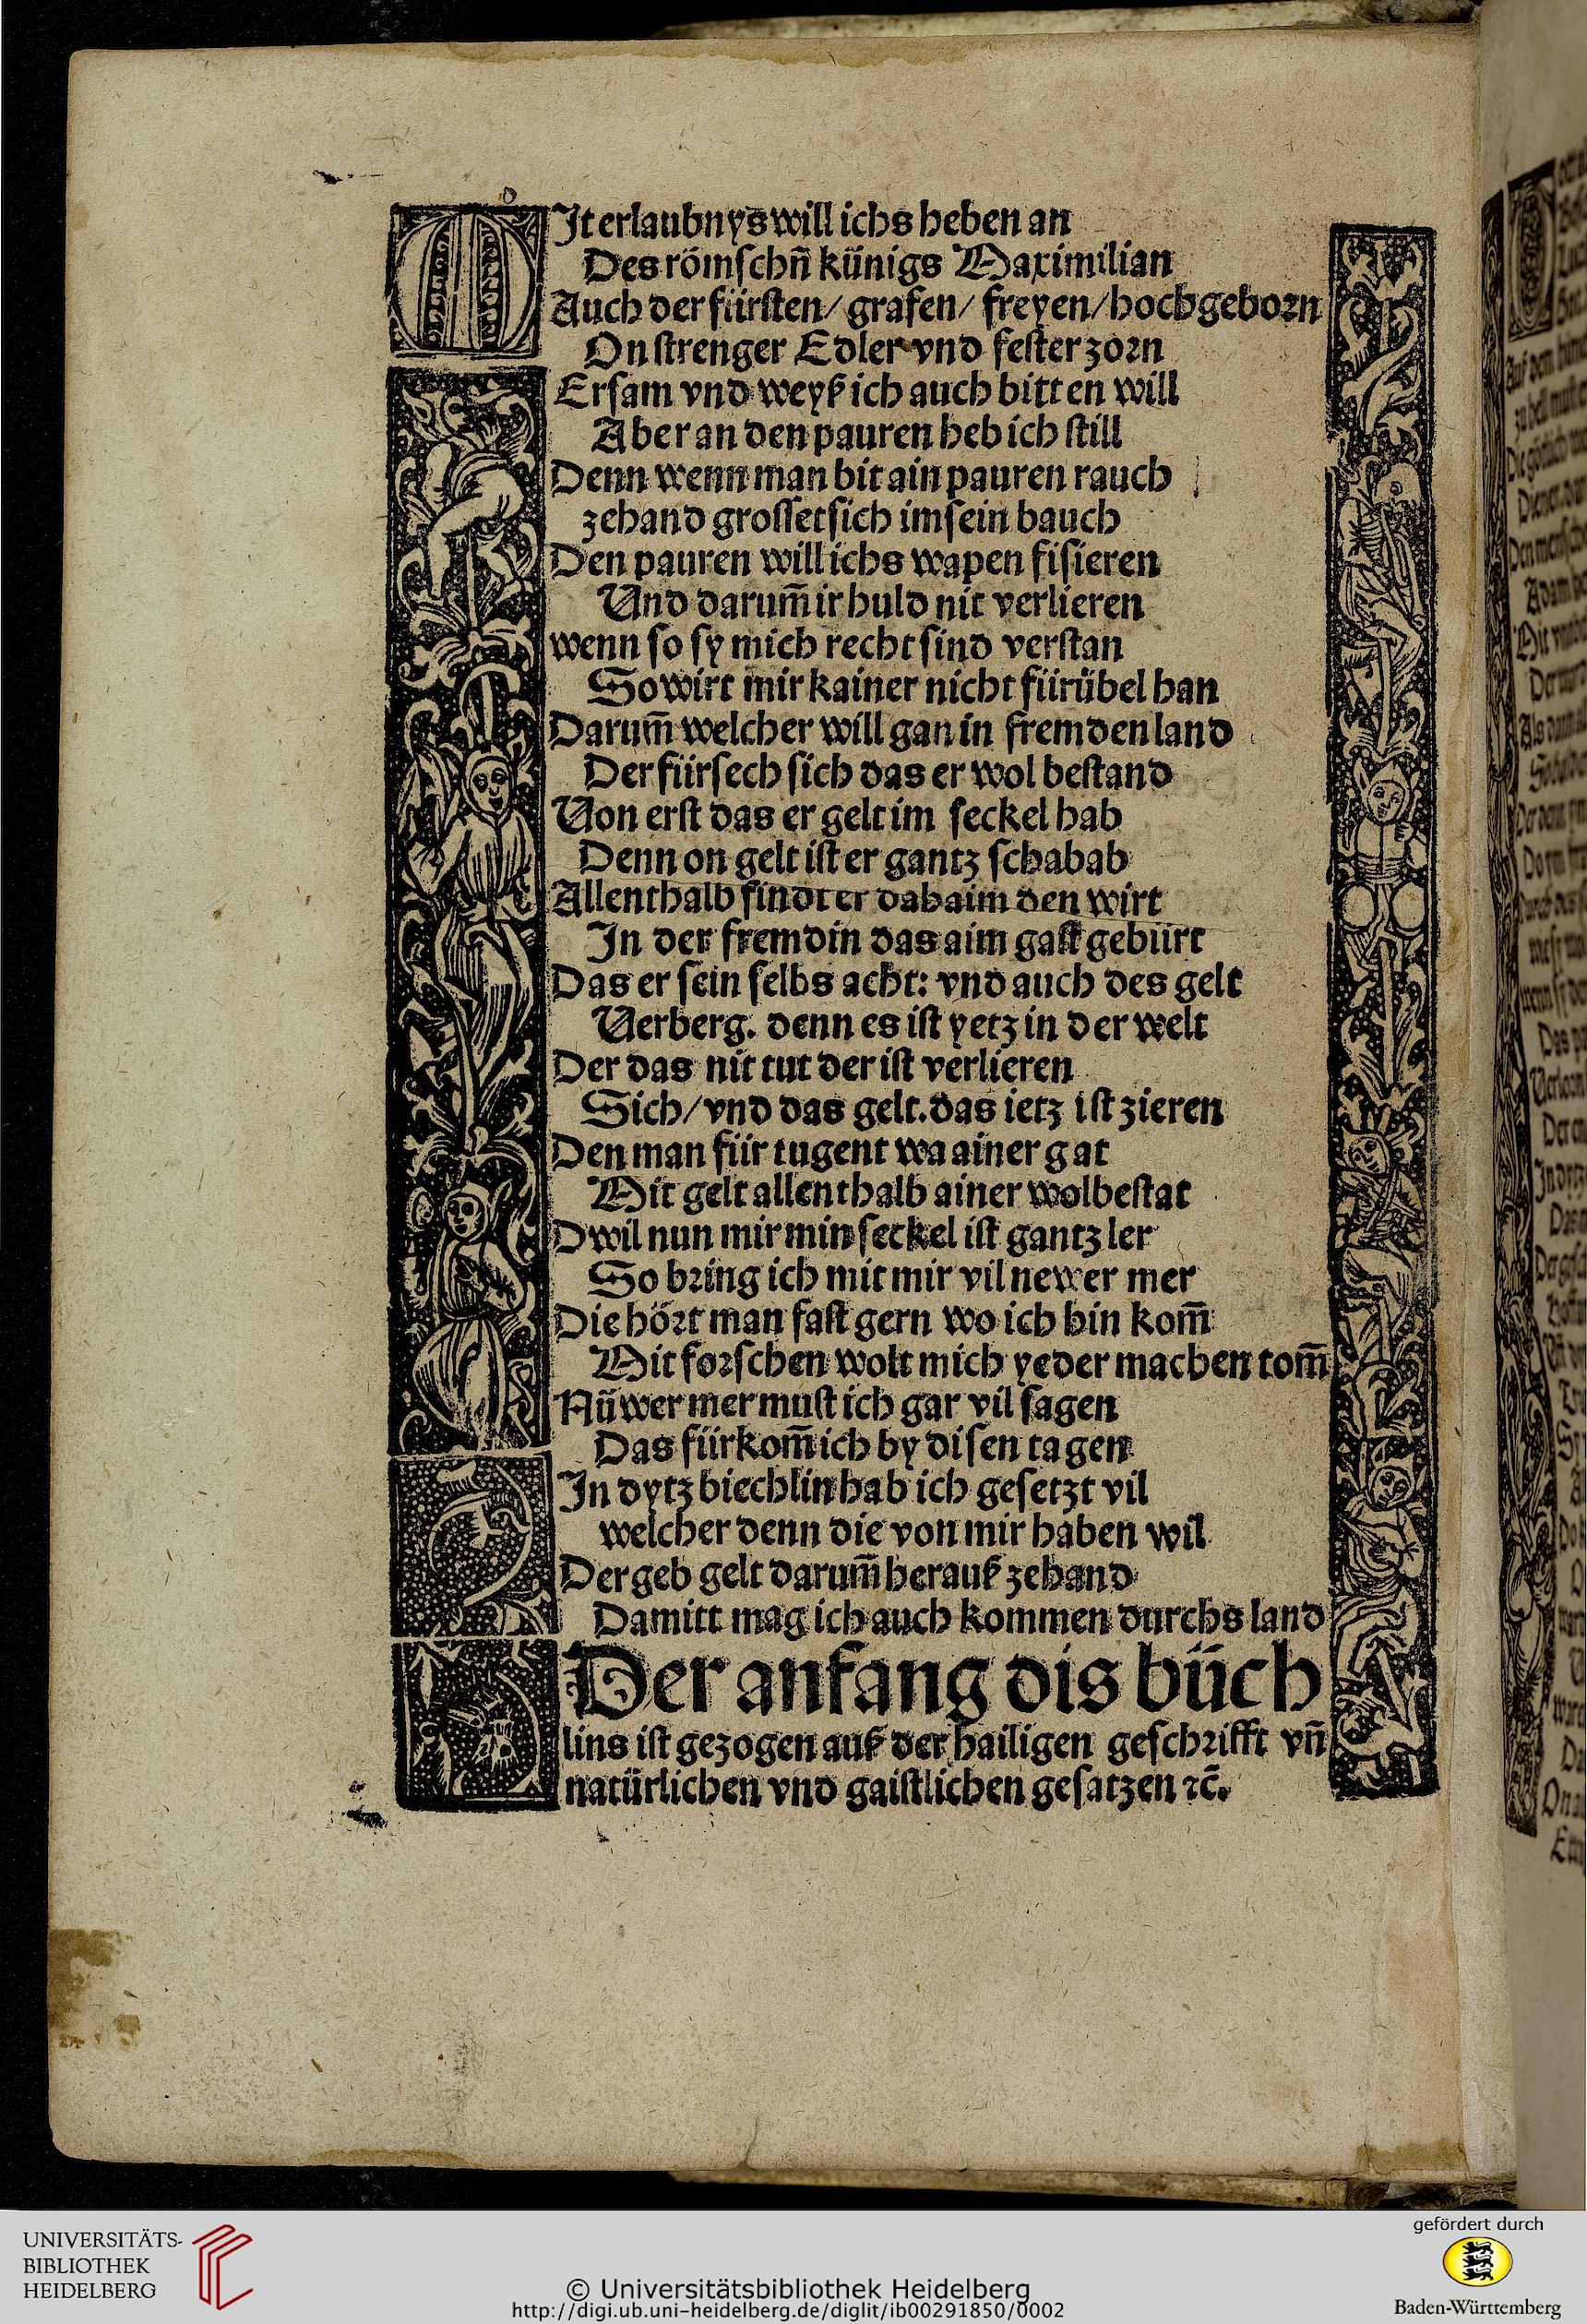 MJt erlaubnys will ichs heben an
Des römschn̄ künigs Maximilian
Auch der fürsten/ grafen/ freyen/ hochgeborn
On strenger Edler vnd fester zorn
Ersam vnd weyß ich auch bitten will
Aber an den pauren heb ich still
Denn wenn man bit ain pauren rauch
zehand grosset sich im sein bauch
Den pauren will ichs wapen fisieren
Und darum̄ ir huld nit verlieren
wenn so sy mich recht sind verstan
So wirt mir kainer nicht für übel han
Darum̄ welcher will gan in fremden land
Der fürsech sich das er wol bestand
Uon erst das er gelt im seckel hab
Denn on gelt ist er gantz schabab
Allenthalb findt er dahaim den wirt
In der fremdin das aim gast gebürt
Das er sein selbs acht: vnd auch des gelt
Uerberg. denn es ist yetz in der welt
Der das nit tut der ist verlieren
Sich/ vnd das gelt. das ietz ist zieren
Den man für tugent wa ainer gat
Mit gelt allenthalb ainer wolbestat
Dwil nun mir min seckel ist gantz ler
So bring ich mit mir vil newer mer
Die hört man fast gern wo ich hin kom̄
Mit forschen wolt mich yeder machen tom̄
Nüwer mer must ich gar vil sagen
Das fürkom̄ ich by disen tagen
In dytz biechlin hab ich gesetzt vil
welcher denn die von mir haben wil
Der geb gelt darum̄ herauß zehand
Damitt mag ich auch kommen durchs land
Der anfang dis büch
lins ist gezogen auß der hailigen geschrifft vn̄
natürlichen vnd gaistlichen gesatzen ꝛc̄.
UNIVERSITÄTS-
BIBLIOTHEK
HEIDELBERG
© Universitätsbibliothek Heidelberg
http://digi.ub.uni-heidelberg.de/diglit/ib00291850/0002
gefördert durch
Baden-Württemberg